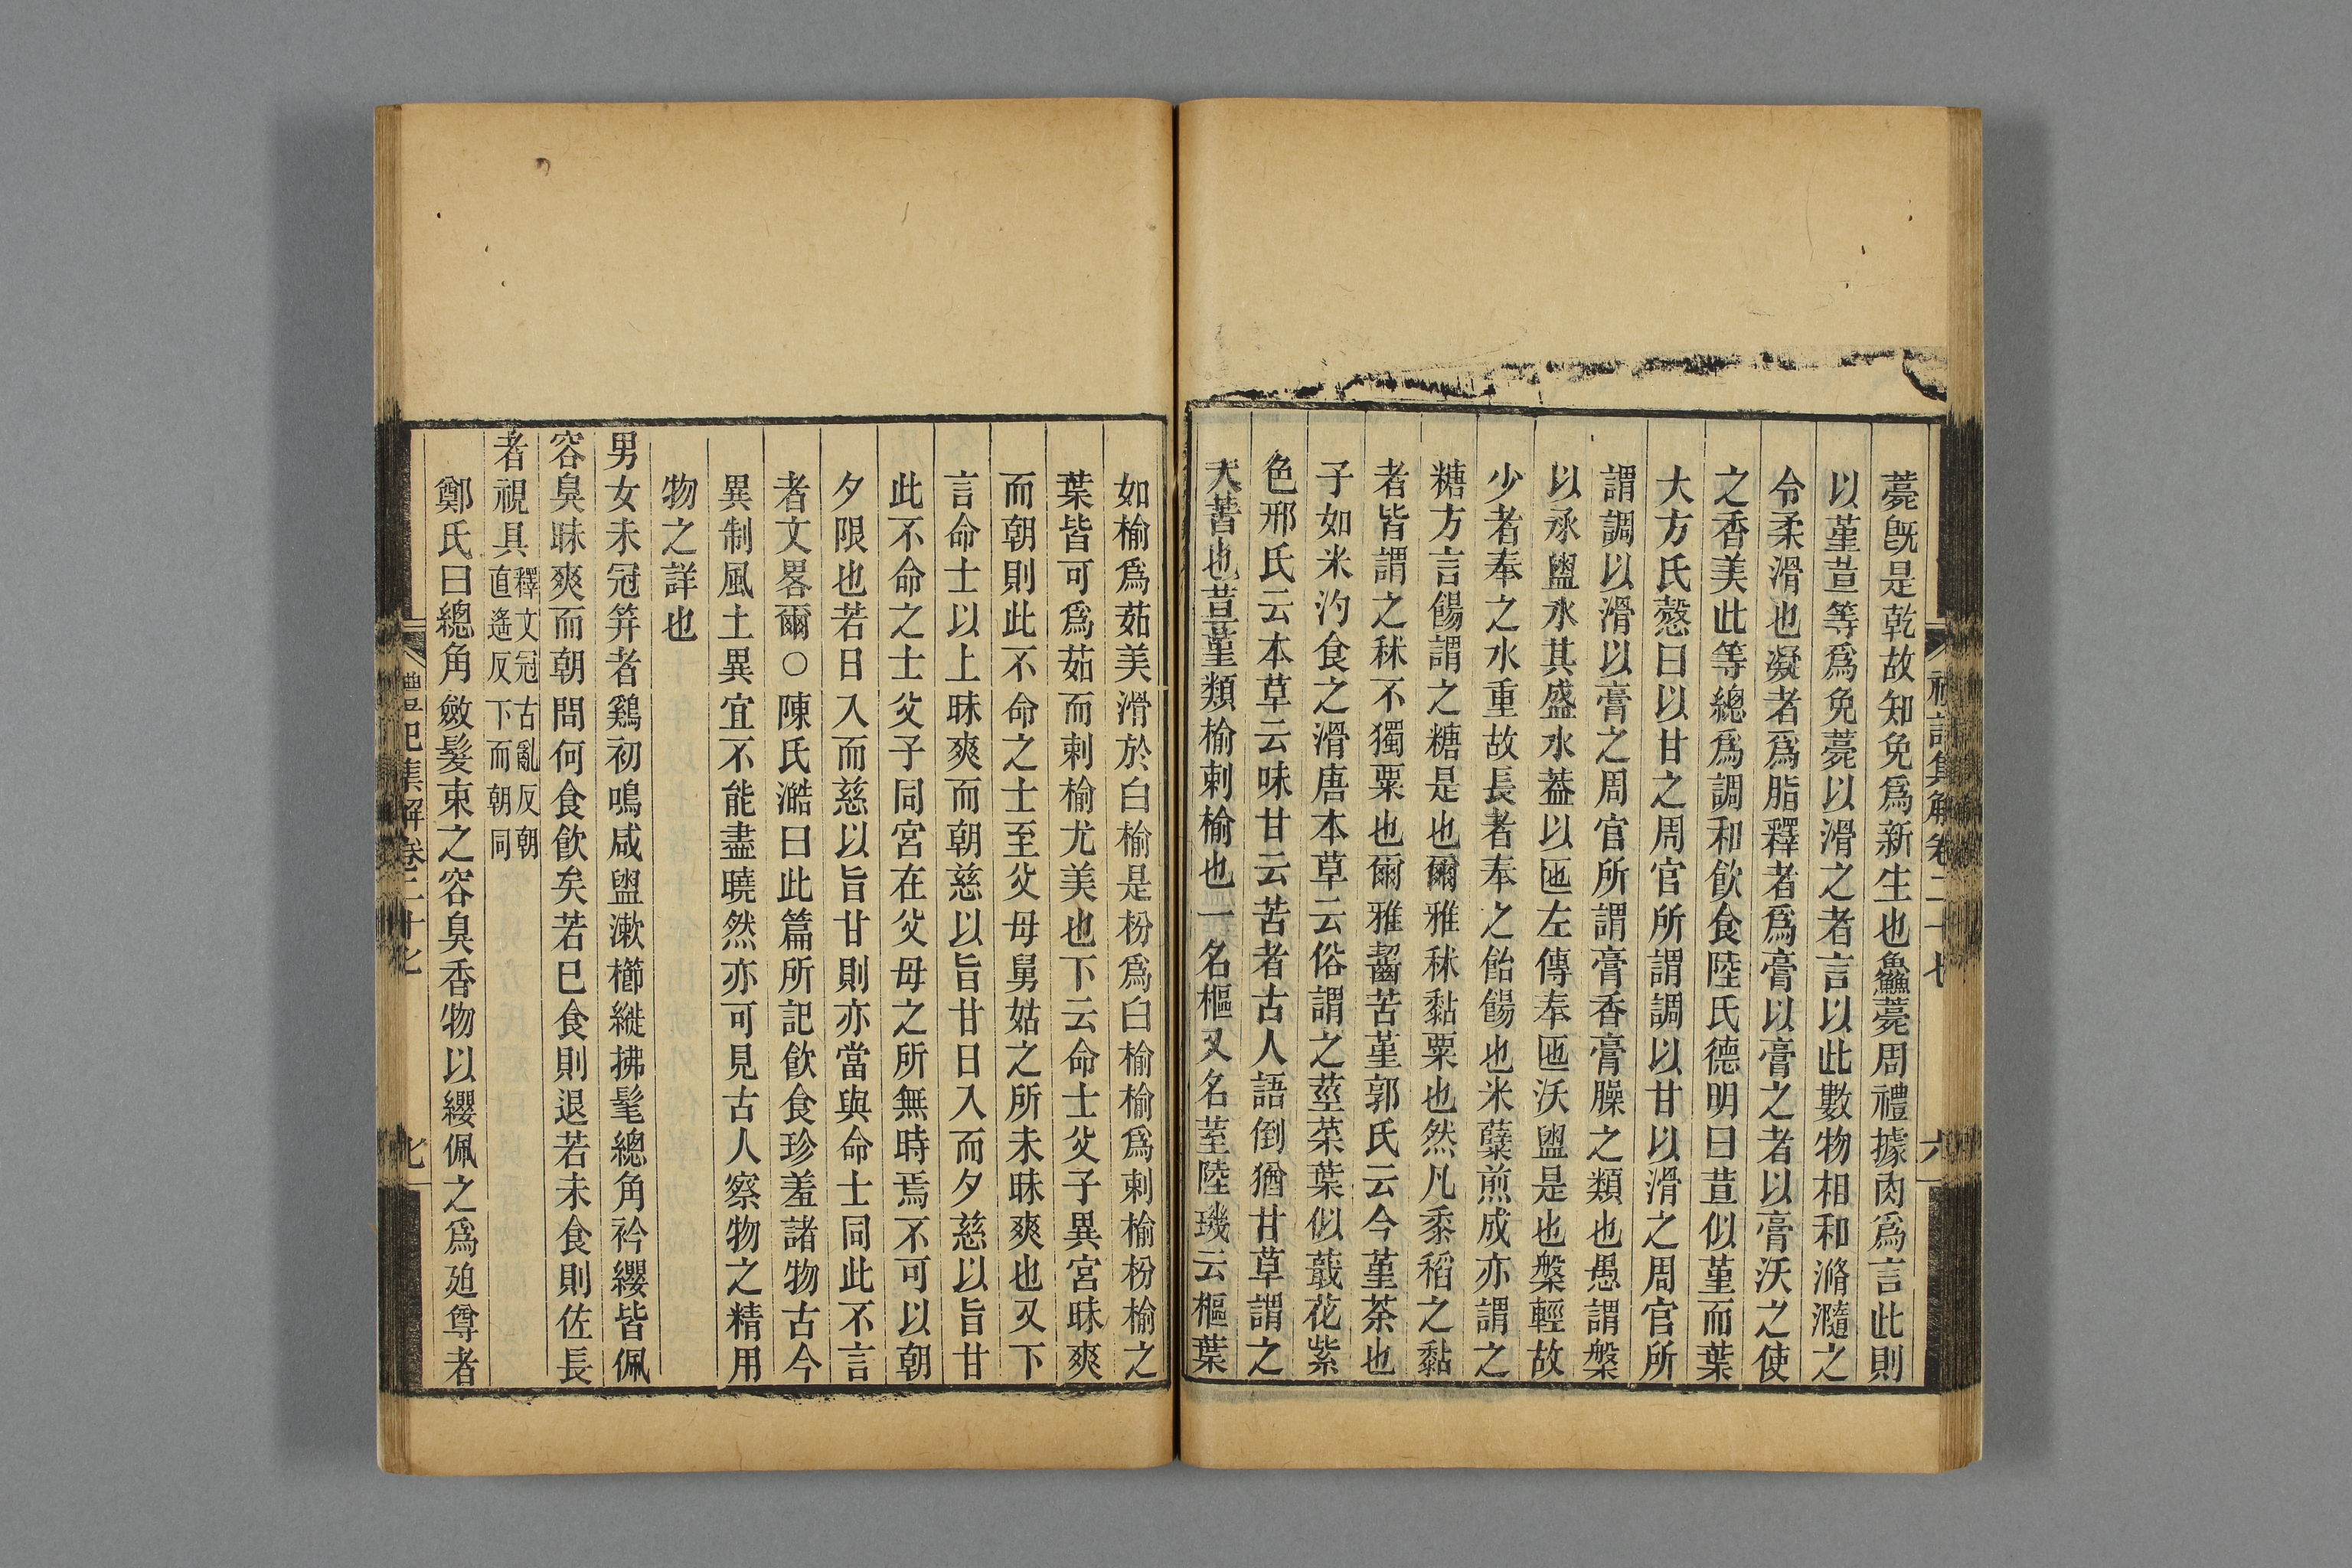 薨旣是乾故知免爲新生也鱻薨周禮據肉爲言此則
以菫荁等爲免薨以滑之者言以此數物相和滫瀡之
令柔滑也凝者爲脂釋者爲膏以膏之者以膏沃之使
之香美此等總爲調和飮食陸氏德明曰荁似菫而葉
大方氏慤曰以甘之周官所謂調以甘以滑之周官所
謂調以滑以膏之周官所謂膏香膏臊之類也愚謂槃
以承盥水其盛水葢以匜左傳奉匜沃盥是也槃輕故
少者奉之水重故長者奉之飴餳也米糵煎成亦謂之
糖方言餳謂之糖是也爾雅秫黏粟也然凡黍稻之黏
者皆謂之秫不獨粟也爾雅齧苦菫郭氏云今菫荼也
子如米汋食之滑唐本草云俗謂之莖菜葉似蕺花紫
色邢氏云本草云味甘云苦者古人語倒猶甘草謂之
大苦也荁菫類榆刺榆也一名樞又名荎陸璣云樞葉
如榆爲茹美滑於白榆是枌爲白榆榆爲刺榆枌榆之
葉皆可爲茹而刺榆尤美也下云命士父子異宮昧爽
而朝則此不命之士至父母舅姑之所未昧爽也又下
言命士以上昧爽而朝慈以旨甘日入而夕慈以旨甘
此不命之士父子同宮在父母之所無時焉不可以朝
夕限也若日入而慈以旨甘則亦當與命士同此不言
者文畧爾○陳氏澔曰此篇所記飮食珍羞諸物古今
異制風土異宜不能盡曉然亦可見古人察物之精用
物之詳也
男女未冠筓者鷄初鳴咸盥漱櫛縰拂髦總角衿纓皆佩
容臭昧爽而朝問何食飮矣若已食則退若未食則佐長
者視具釋文冠古亂反朝直遙反下而朝同
鄭氏曰總角斂髮束之容臭香物以纓佩之爲廹尊者
禮記集解卷二十七
七